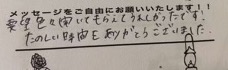 メッセージをご自由にお願いいたします!!
要望色々聞いてもらえてうれしかったです!
たのしい時間をありがとうございました。